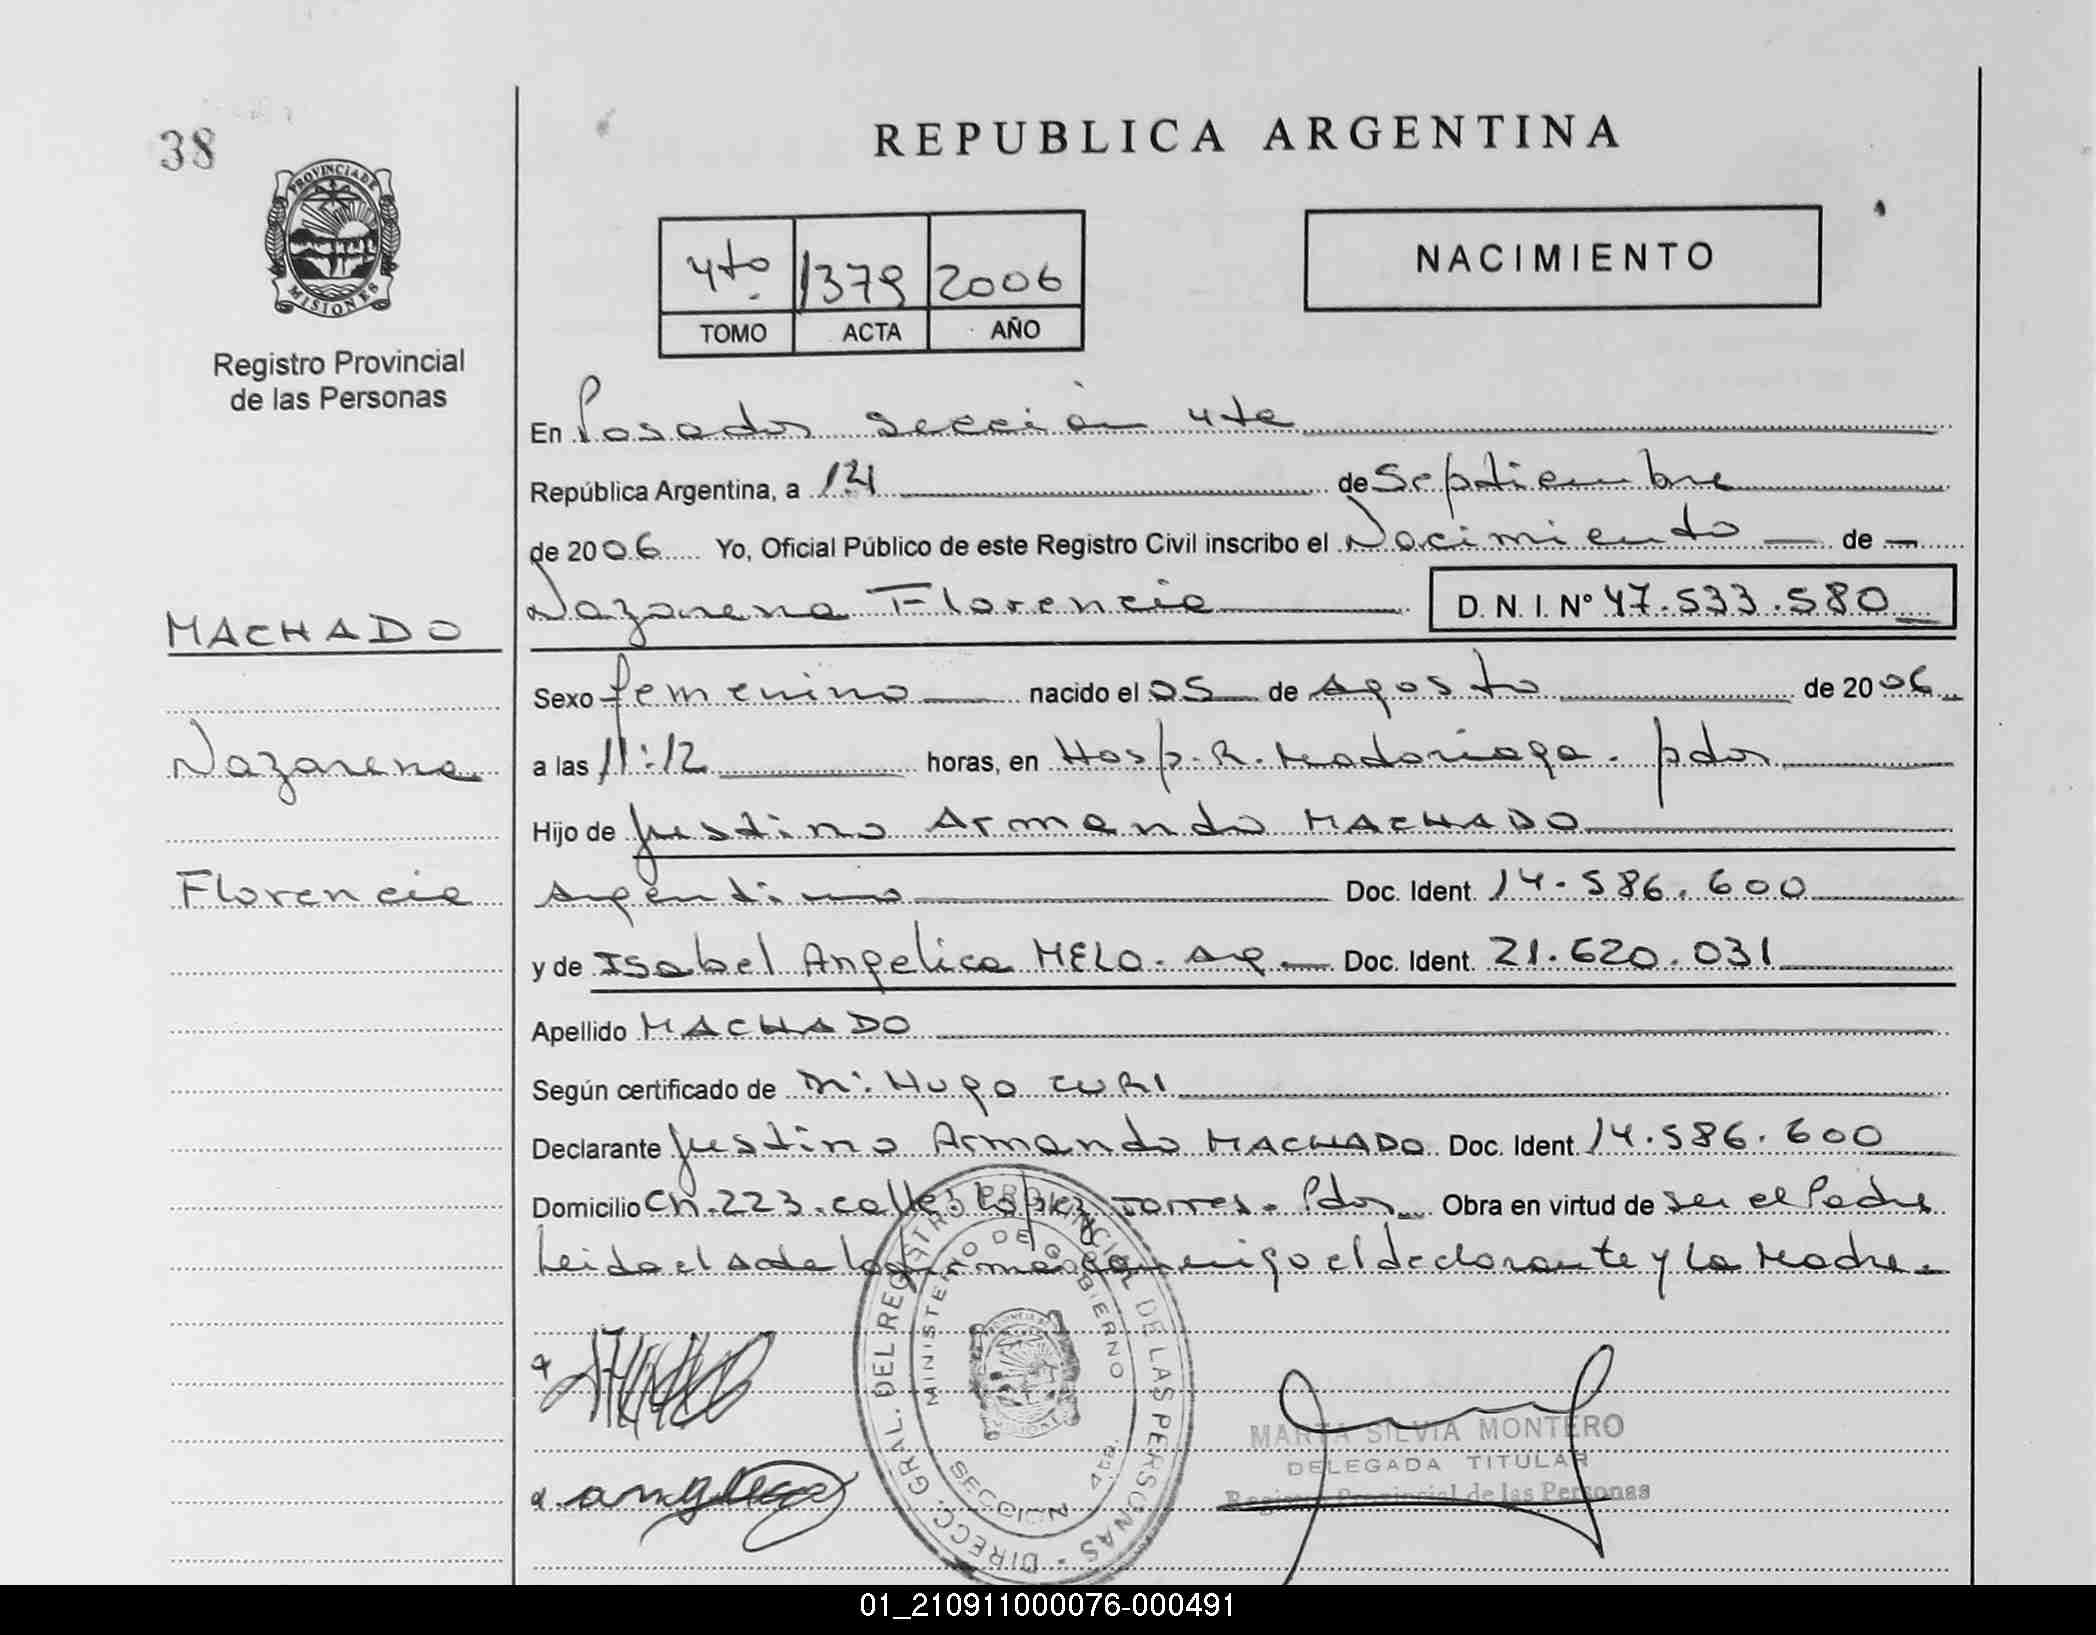 38
PROVINCIA DE
MISIONES
Registro Provincial
de las Personas
REPUBLICA ARGENTINA
4to. 1379 2006
TOMO ACTA AÑO
NACIMIENTO
En Posadas sección 4ta
República Argentina, a de Septiembre
de 2006 Yo, Oficial Público de este Registro Civil inscribo el Nacimiento de
Nazarena Florencia D.N.I. Nº 47.533.580
MACHADO
Sexo femenino nacido el 05 de Agosto de 2006
Nazarena
a las 11:12 horas, en Hosp. R. Madariaga. pdas
Hijo de Justino Armando MACHADO
Florencia
Argentino Doc. Ident. 14.586.600
y de Isabel Angelica MELO. Arg. Doc. Ident. 21.620.031
Apellido MACHADO
Según certificado de Hugo CURI
Declarante Justino Armando MACHADO Doc. Ident. 14.586.600
Domicilio Ch. 223. calle Lopez Torres. Pdas Obra en virtud de ser el Padre
Leida el acta la firma conmigo el declarante y la Madre.
DIRECC. GRAL. DEL REGISTRO PROVINCIAL DE LAS PERSONAS
MINISTERIO DE GOBIERNO
SECCION 4ta.
MARTA SILVIA MONTERO
DELEGADA TITULAR
Registro Provincial de las Personas
01_210911000076-000491